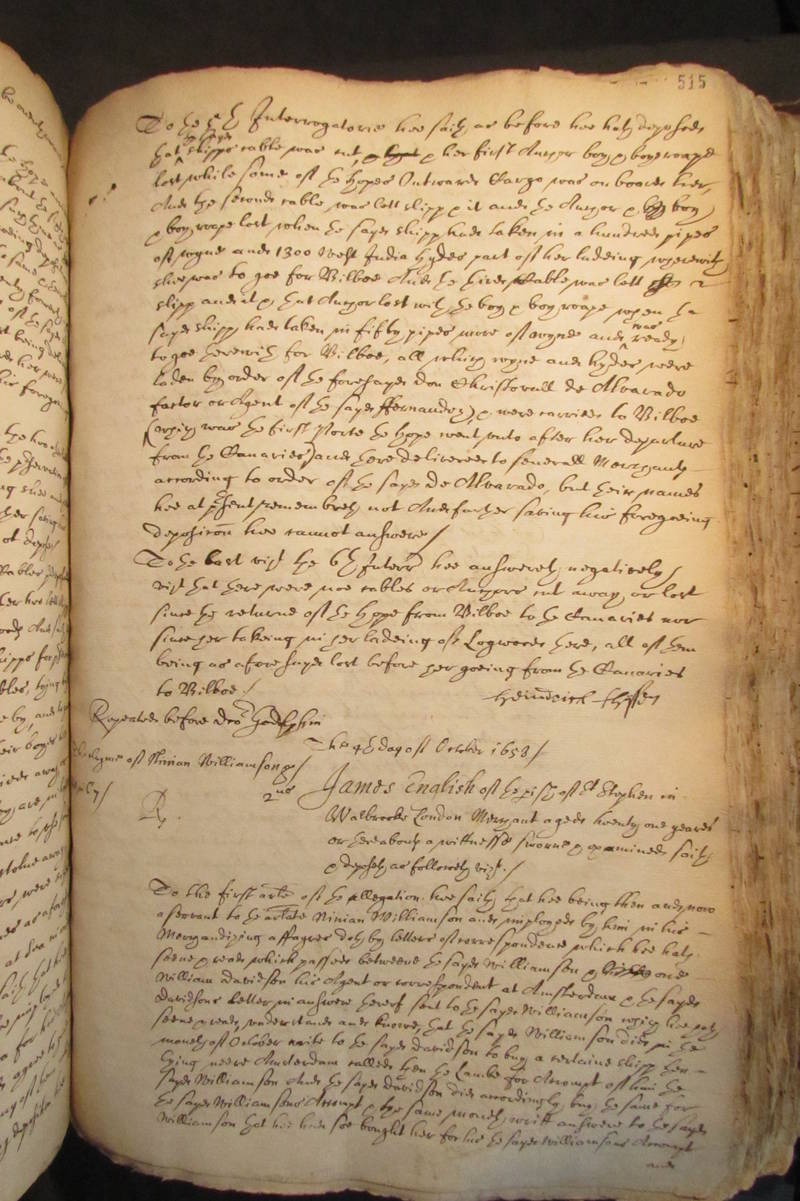 515
To the 5th Interrogatorie hee saith as before hee hath deposed
that the sayd shipps cable was cut, & her first Anchor boy & boyroape
lost while some of the hopes Outwards Cargo was on board her,
And the second cable was lett slipp & it and the Anchor & boy
& boyroape lost when the sayd shipp had taken in a hundred pipes
of wyne and 1300 West India hydes part of her ladeing wherewith
shee was to goe for Bilboe And the third Cable was lett
slipp and it & that Anchor lost with the boy & boyroape when the
sayd shipp had taken in fifty pipes more of wyne and was ready
to goe therewith for Bilboe, all which wyne and hydes were
laden by order of the foresayd don Christovall de Alvarado
factor or Agent of the sayd ffernandez, & were carried to Bilboe
(which was the first Porte the hope went unto after her departure
from the Canaries) and there delivered to severall Merchants
according to order of the sayd de Alvarado, but their names
hee at present remembreth not And further saving his foregoeing
deposition hee cannot answere/
To the last vizt the 6th Interr hee answereth negatively/
vizt that there were noe cables or Anchors cut away or lost
since the returne of the hope from Bilboe to the Canaries nor
since her takeing in her ladeing of Logwood there, all of them
being as aforesayd lost before her goeing from the Canaries
to Bilboe./
Heinderick
Repeated before doctor Godolphin
The 4th day of October 1658/
of Ninian Williamson
2us
James English of the parish of St Stephen in
Walbrooke London Merchant aged twenty one yeares
or thereabouts a wittnesse sworne & examined saith
& deposeth as followeth vizt./
To the first article of the allegation hee saith that hee being then and now
a servant to the articulate Ninian Williamson and imployed by him in his
Merchandizing affayres doth by letters of correspondence which hee hath
seene & read which passed betweene the sayd Williamson & one
William davidson his Agent or correspondent at Amsterdam & the sayd
davidsons letter in answere thereof sent to the sayd Williamson which hee hath
seene & read, understand and knowe, that the sayd Williamson did in the
moneth of October write to the sayd davidson to buy a certaine shipp then
lying neere Amsterdam called then the Lambe for Accompt of him the
sayd Williamson And the sayd davidson did accordingly buy the same for
the sayd Williamsons Accompt & the same moneth writt answere to the sayd
Williamson that hee had soe bought her for his the sayd Williamsons Accompt
and